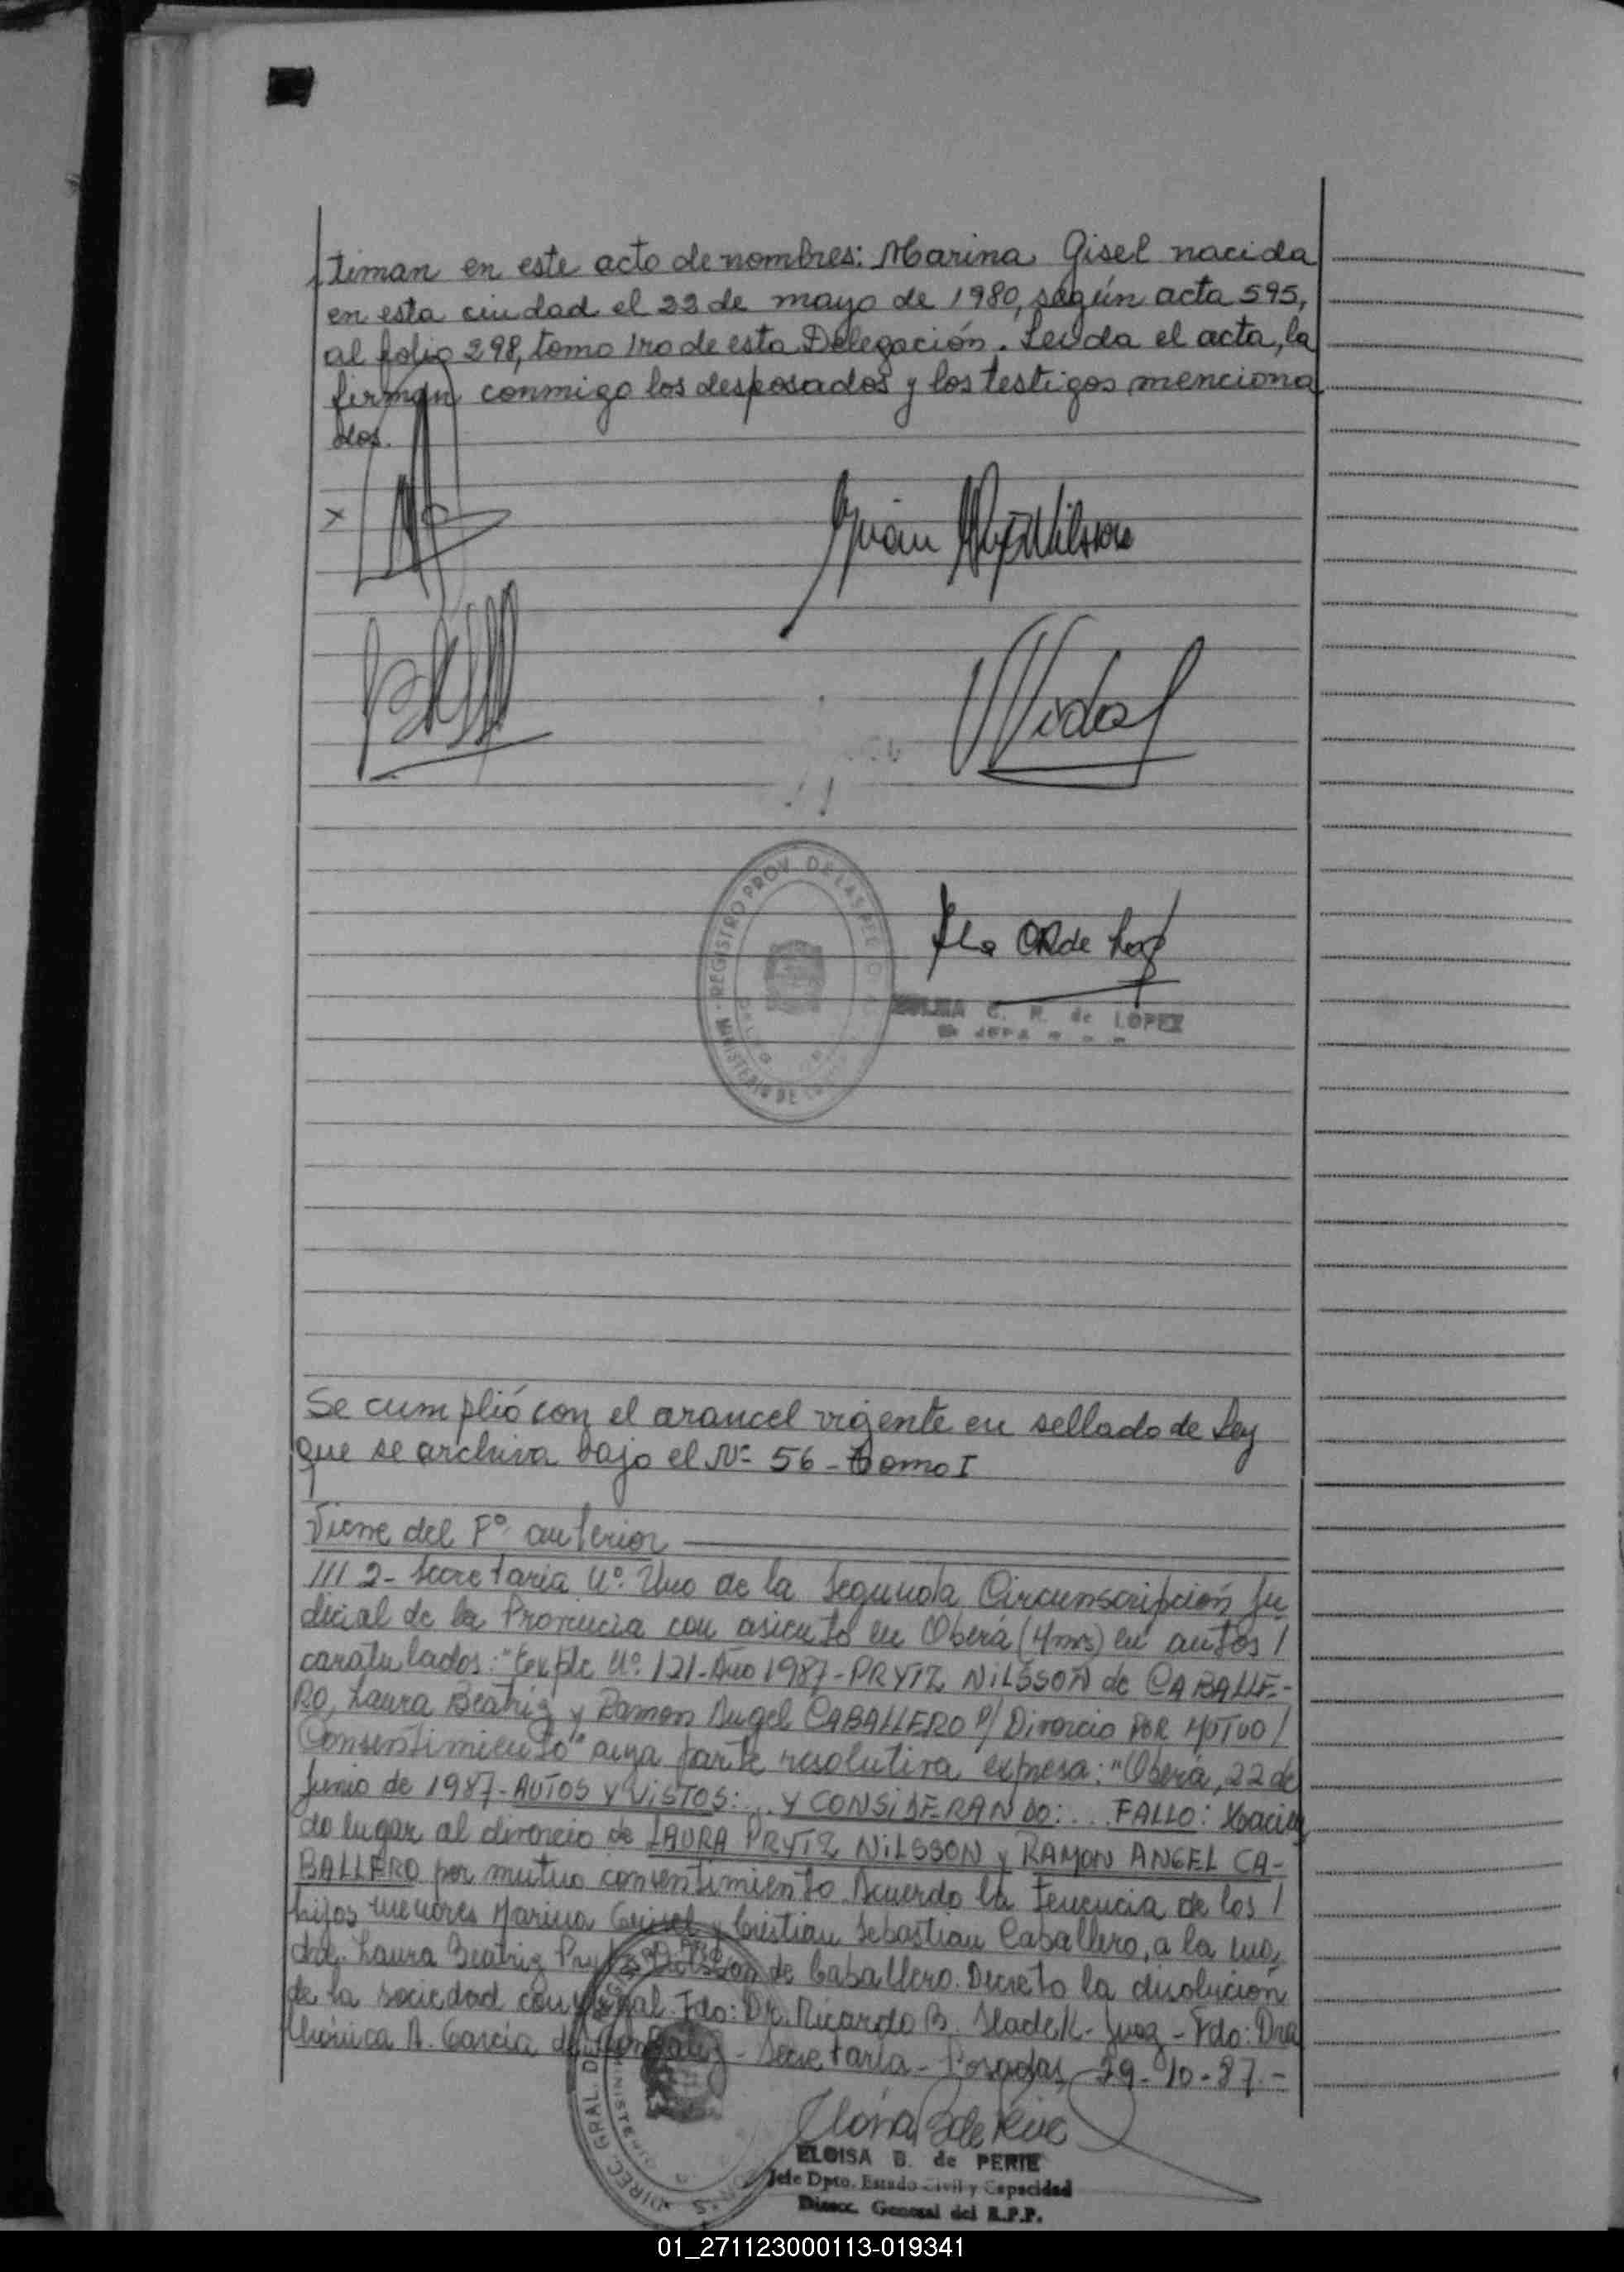 timan en este acto de nombres: Marina Gisel nacida
en esta ciudad el 22 de mayo de 1980, según acta 595,
al folio 298, tomo 1ro de esta Delegación. Leída el acta, la
firman conmigo los desposados y los testigos menciona
dos.
x
Vidal
REGISTRO PROV. DE LAS PER
MINISTERIO DE
C. R. de LOPEZ
Se cumplió con el arancel vigente en sellado de Ley
que se archiva bajo el Nº 56 - Tomo I
Viene del Fº anterior
/// 2- Secretaría Nº Uno de la Segunda Circunscripción Ju
dicial de la Provincia con asiento en Oberá (Mnes) en autos /
caratulados: "Expte Nº 121-Año 1987-PRYTZ NILSSON de CABALLE-
RO, Laura Beatriz y Ramon Angel CABALLERO s/ Divorcio POR MUTUO /
Consentimiento" cuya parte resolutiva expresa: "Oberá, 22 de
Junio de 1987- AUTOS Y VISTOS: ... Y CONSIDERANDO: ... FALLO: Hacien
do lugar al divorcio de LAURA PRYTZ NILSSON y RAMON ANGEL CA-
BALLERO por mutuo consentimiento. Acuerdo la tenencia de los /
hijos menores Marina Guisel y Cristian Sebastian Caballero, a la ma-
dre Laura Beatriz Prytz Nilsson de Caballero. Decreto la disolución
de la sociedad conyugal. Fdo: Dr. Ricardo B. Sladek - Juez - Fdo: Dra
Mónica A. García de - Secretaría - Posadas, 29-10-87.-
DIREC. GRAL. D
ELOISA B. de PERIE
Jefe Dpto. Estado Civil y Capacidad
Direcc. General del R.P.P.
01_271123000113-019341